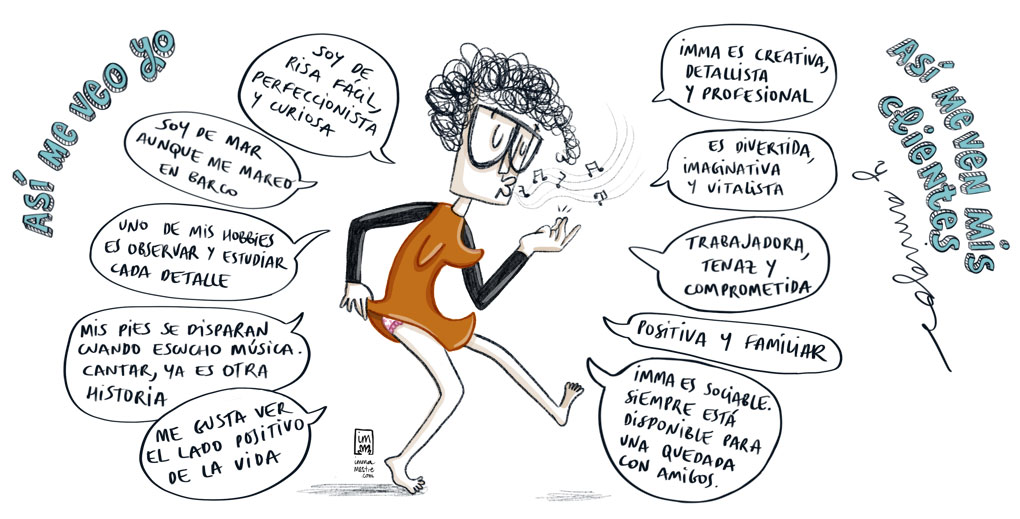 ASÍ ME VEO YO
SOY DE
RISA FÁCIL,
PERFECCIONISTA
Y CURIOSA
SOY DE MAR
AUNQUE ME MAREO
EN BARCO
UNO DE MIS HOBBIES
ES OBSERVAR Y ESTUDIAR
CADA DETALLE
MIS PIES SE DISPARAN
CUANDO ESCUCHO MÚSICA.
CANTAR, YA ES OTRA
HISTORIA
ME GUSTA VER
EL LADO POSITIVO
DE LA VIDA
ASÍ ME VEN MIS
CLIENTES
y amigos
IMMA ES CREATIVA,
DETALLISTA
Y PROFESIONAL
ES DIVERTIDA,
IMAGINATIVA
Y VITALISTA
TRABAJADORA,
TENAZ Y
COMPROMETIDA
POSITIVA Y FAMILIAR
IMMA ES SOCIABLE.
SIEMPRE ESTÁ
DISPONIBLE PARA
UNA QUEDADA
CON AMIGOS.
im
ma
imma
mestre
com